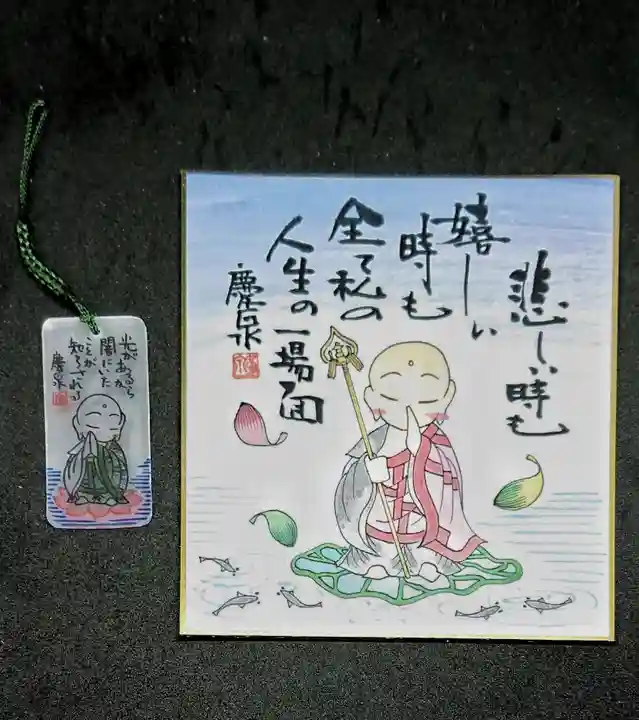 悲しい時も
嬉しい
時も
全て私の
人生の一場面
慶泉
光があるから
闇にいた
ことが
知らされる
慶泉